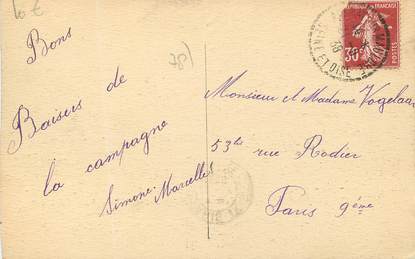 10 €
(78)
Bons
Baisers de
la campagne
Simone Marcelles
REPUBLIQUE FRANCAISE
30
POSTES
SEINE ET OISE
38
Monsieur et Madame Vogelar
53 bis rue Rodier
Paris 9ème